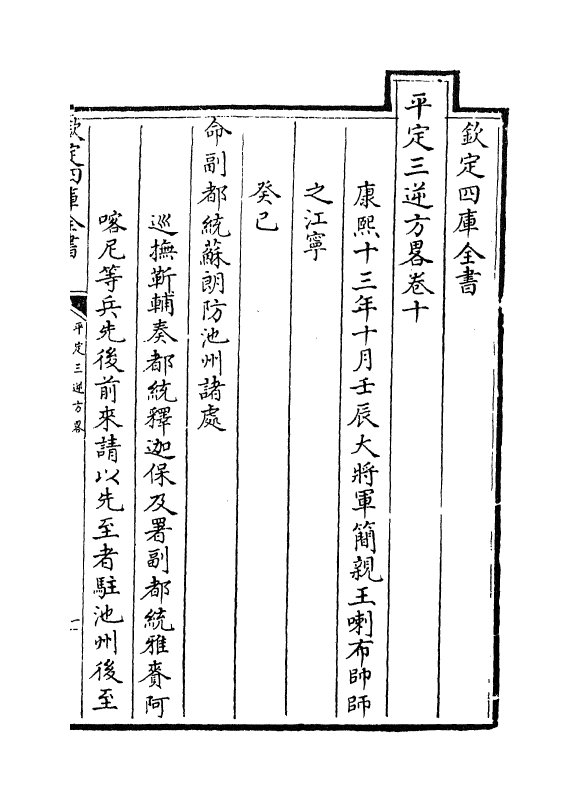 欽定四庫全書
平定三逆方畧卷十
康熙十三年十月壬辰大將軍簡親王喇布帥師
之江寧
癸已
命副都統蘇朗防池州諸處
巡撫靳輔奏都統釋迦保及署副都統雅賚阿
喀尼等兵先後前來請以先至者駐池州後至
欽定四庫全書
平定三逆方畧
一